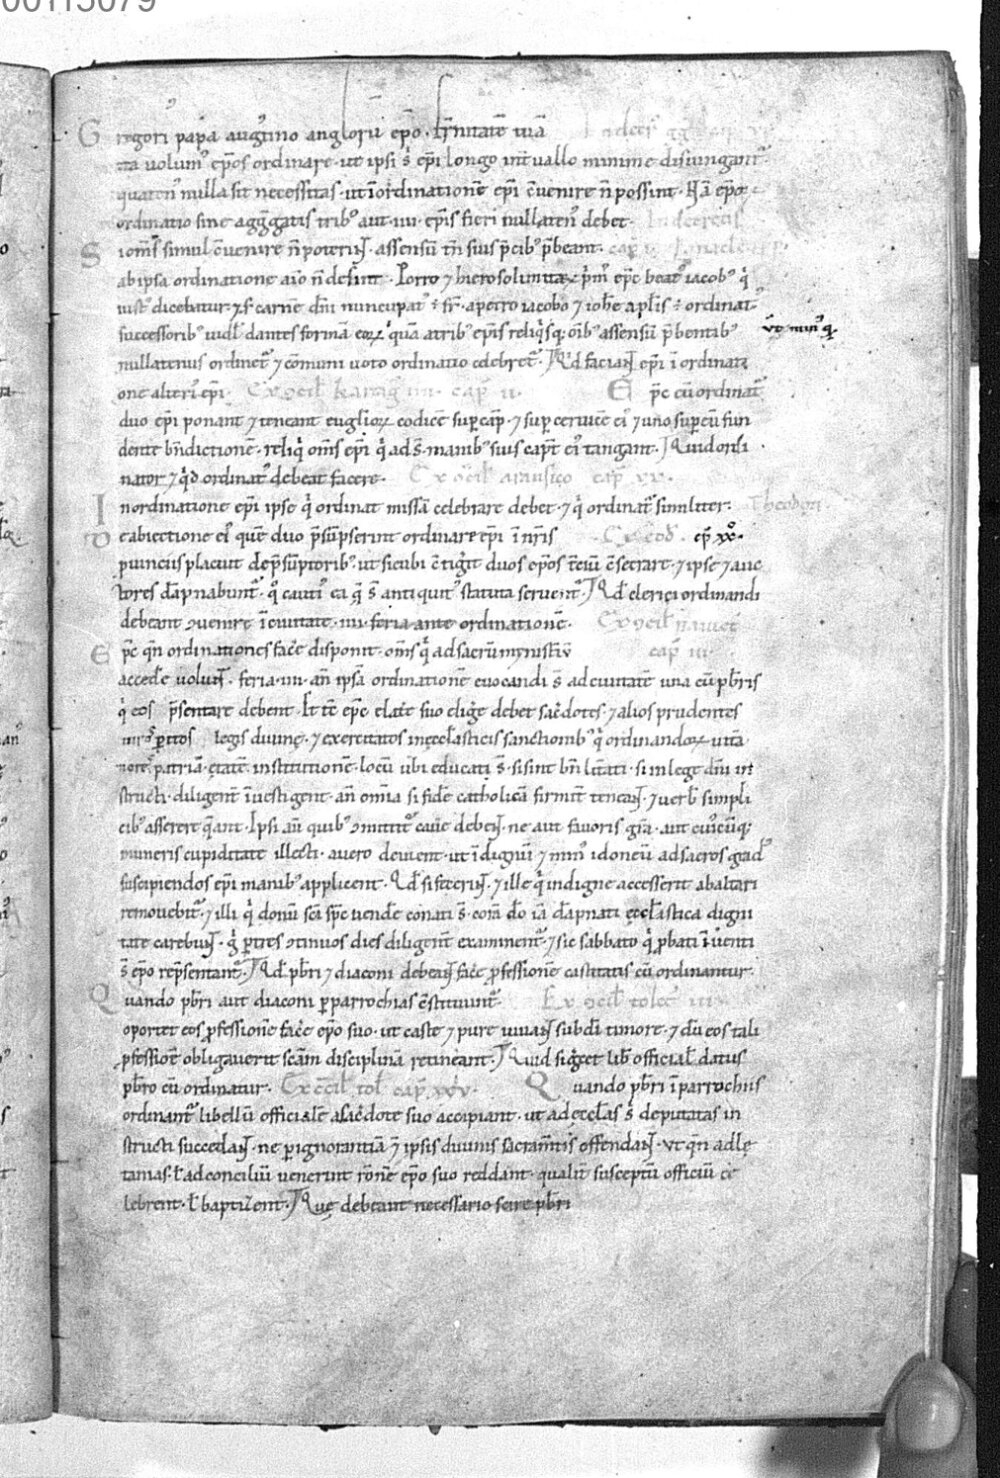 00115079
Gregori᷒ papa augꝰtino anglorū ep̄o. Fr̄nitatē tuā In decr̄
ita volumꝰ ep̄os ordinare. ut ipsi s̄ ep̄i longo int̄uallo minime disiungant᷒
quatenꝰ nulla sit necessitas. ut ī ordinationē ep̄i c̄uenire n̄ possint. Nā ep̄oꝝ
ordinatio sine aggregatis tribꝰ aut. iiii. ep̄is fieri nullatenꝰ debet. In decretis
Si om̄s simul c̄uenire n̄ poterint. assensū tn̄ suis p̄cibꝰ p̄beant. cap̄
ab ipsa ordinatione aīo n̄ desint. Porro ⁊ hierosolimitaꝝ p̄mꝰ ep̄c beatꝰ iacobꝰ q̄
iustꝰ dicebatur ⁊ s̄ carnē dn̄i nuncupatꝰ ē fr̄. a petro iacobo ⁊ ioh̄e ap̄lis ē ordinatꝰ
successoribꝰ uidl̄ dantes formā eoꝝ ꝙ̄ quā a tribꝰ ep̄is reliq̄sq. om̄ibꝰ assensū p̄bentibꝰ
nullatenus ordinet᷒ ⁊ cōmuni uoto ordinatio celebret᷒. Qd̄ faciant ep̄i ī ordinati
one alteriꝰ ep̄i. Ex ɔcil̄ kartaḡ iiii. cap̄ ii. Ep̄c cū ordinat᷒
duo ep̄i ponant ⁊ teneant eugl̄ioꝝ codicē sup̄ cap̄. ⁊ sup̄ ceruicē eiꝰ ⁊ uno sup̄ eū fun
dente bn̄dictionē. reliq̄ om̄s ep̄i q̄ adś manibꝰ suis capꝰ eiꝰ tangant. Quid ordi
nator ⁊ q̄d ordinatꝰ debeat facere. Ex ɔcil̄ arausico cap̄ xv.
In ordinatione ep̄i ipse q̄ ordinat missā celebrare debet. ⁊ q̄ ordinat᷒ similiter. Theodori
De abiectione eiꝰ quē duo p̄sūpserint ordinare ep̄i ī nr̄is Ex eod̄. cp̄ xx̊.
puinciis placuit de p̄sūptoribꝰ. ut sicubi c̄tiḡit duos ep̄os
tores dāpnabunt᷒. q̊ cautiꝰ ea q̄ s̄ antiquitꝰ statuta seruent᷒. Qd̄ clerici ordinandi
debeant ɔuenire ī ciuitate. iiii. feria ante ordinationē. Ex ɔcil̄ nānet̄
Ep̄c q̄n ordinationes fac̄e disponit. om̄s q̄ ad sacrū mynist̄iū cap̄ iii.
acced̄e uolunt. feria. iiii. an̄ ipsā ordinationē euocandi s̄ ad ciuitatē una cū p̄b̄ris
q̄ eos p̄sentare debent. Et tc̄ ep̄c e lat̄e suo eliḡe debet sac̄dotes. ⁊ alios prudentes
uiros peritos legis diuinę. ⁊ exercitatos in ęccl̄asticis sanctionibꝰ q̄ ordinandoꝝ uitā
patriā. ętatē institutionē. locū ubi educati s̄. si sint bn̄ litt̄ati. si in lege dn̄i in
structi. diligent̄ īuestigent. an̄ omīa si fidē catholicā firmit̄ teneant. ⁊ uerb̄ simpli
cibꝰ asserere q̄ant. Ipsi aū quibꝰ ɔmittit᷒ cau̅e debent. ne aut fauoris gr̄a. aut cuiꝰcūq;
muneris cupiditate illecti. a uero deuient. ut ī dignū ⁊ minꝰ idoneū ad sacros gradꝰ
suscipiendos ep̄i manibꝰ applicent. Qd̄ si fecerint. ⁊ ille q̄ indigne accesserit ab altari
remouebit᷒. ⁊ illi q̄ donū sc̄i sp̄c uend̄e conati s̄. corā d̄o iā dāpnati ęccl̄astica digni
tate carebunt. g̊ p tres ɔtinuos dies diligent̄ examinent᷒. ⁊ sic sabbato q̄ probati īuenti
s̄ ep̄o rep̄sentant᷒. Qd̄ p̄b̄ri ⁊ diaconi debeant fac̄e p̄fessionē castitatis cū ordinantur.
Quando p̄b̄ri aut diaconi p parrochias c̄stituunt᷒. Ex ɔcil̄ tolet̄ iii.
oportet eos p̄fessionē fac̄e ep̄o suo. ut caste ⁊ pure uiuant sub dī timore. ⁊ dū eos tali
p̄fessiōe obligauerit sc̄am disciplinā retineant. Quid sig̅cet lib̄ official̄ datus
p̄b̄ro cū ordinatur. Ex c̄cil̄ tol̄ cap̄ xxv. Quando p̄b̄ri ī parrochiis
ordinant᷒ libellū officialē a sac̄dote suo accipiant. ut ad eccl̄as s̄ deputatas in
structi succedant. ne p ignorantiā ⁊ ipsis diuinis sacram̄tis offendant. Ut q̄n ad lę
tanias. l̄ ad conciliū uenerint rōnē ep̄o suo reddant. qualit̄ susceptū officiū ce
lebrent. l̄ baptizent. Quę debeant necessario scire p̄b̄ri